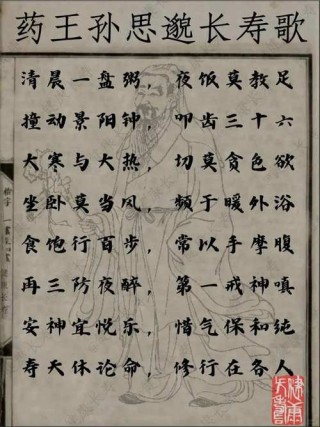 药王孙思邈长寿歌
清晨一盘粥，夜饭莫教足
撞动景阳钟，叩齿三十六
大寒与大热，切莫贪色欲
坐卧莫当风，频于暖外浴
食饱行百步，常以手摩腹
再三防夜醉，第一戒神嗔
安神宜悦乐，惜气保和纯
寿夭休论命，修行在各人